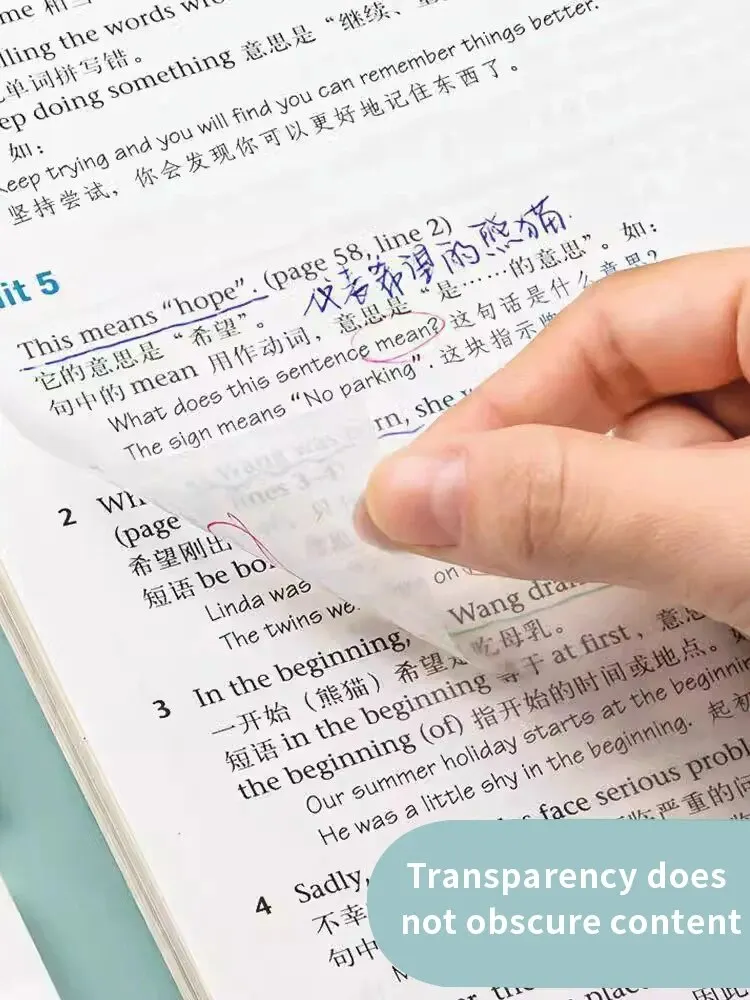 me 相当
lling the words
单词拼写错。
ep doing something 意思是“继续、
如：
Keep trying and you will find you can remember things better.
坚持尝试，你会发现你可以更好地记住东西了。
it 5
This means "hope". (page 58, line 2)
仪表希望的熊猫.
它的意思是“希望”。
句中的 mean 用作动词，意思是“是……的意思”。如：
What does this sentence mean? 这句话是什么意思？
The sign means "No parking". 这块指示牌
rn, she
Wang was
lines 3-4)
2 Wh
(page
希望刚出
短语 be bo
Linda was
The twins we
on
Wang dran
吃母乳。
3 In the beginning,
一开始（熊猫）希望
短语 in the beginning 等于 at first，意思
the beginning (of) 指开始的时间或地点。如
Our summer holiday starts at the beginnin
He was a little shy in the beginning. 起初
face serious probl
临严重的问
4 Sadly,
不幸
句中
Transparency does
not obscure content